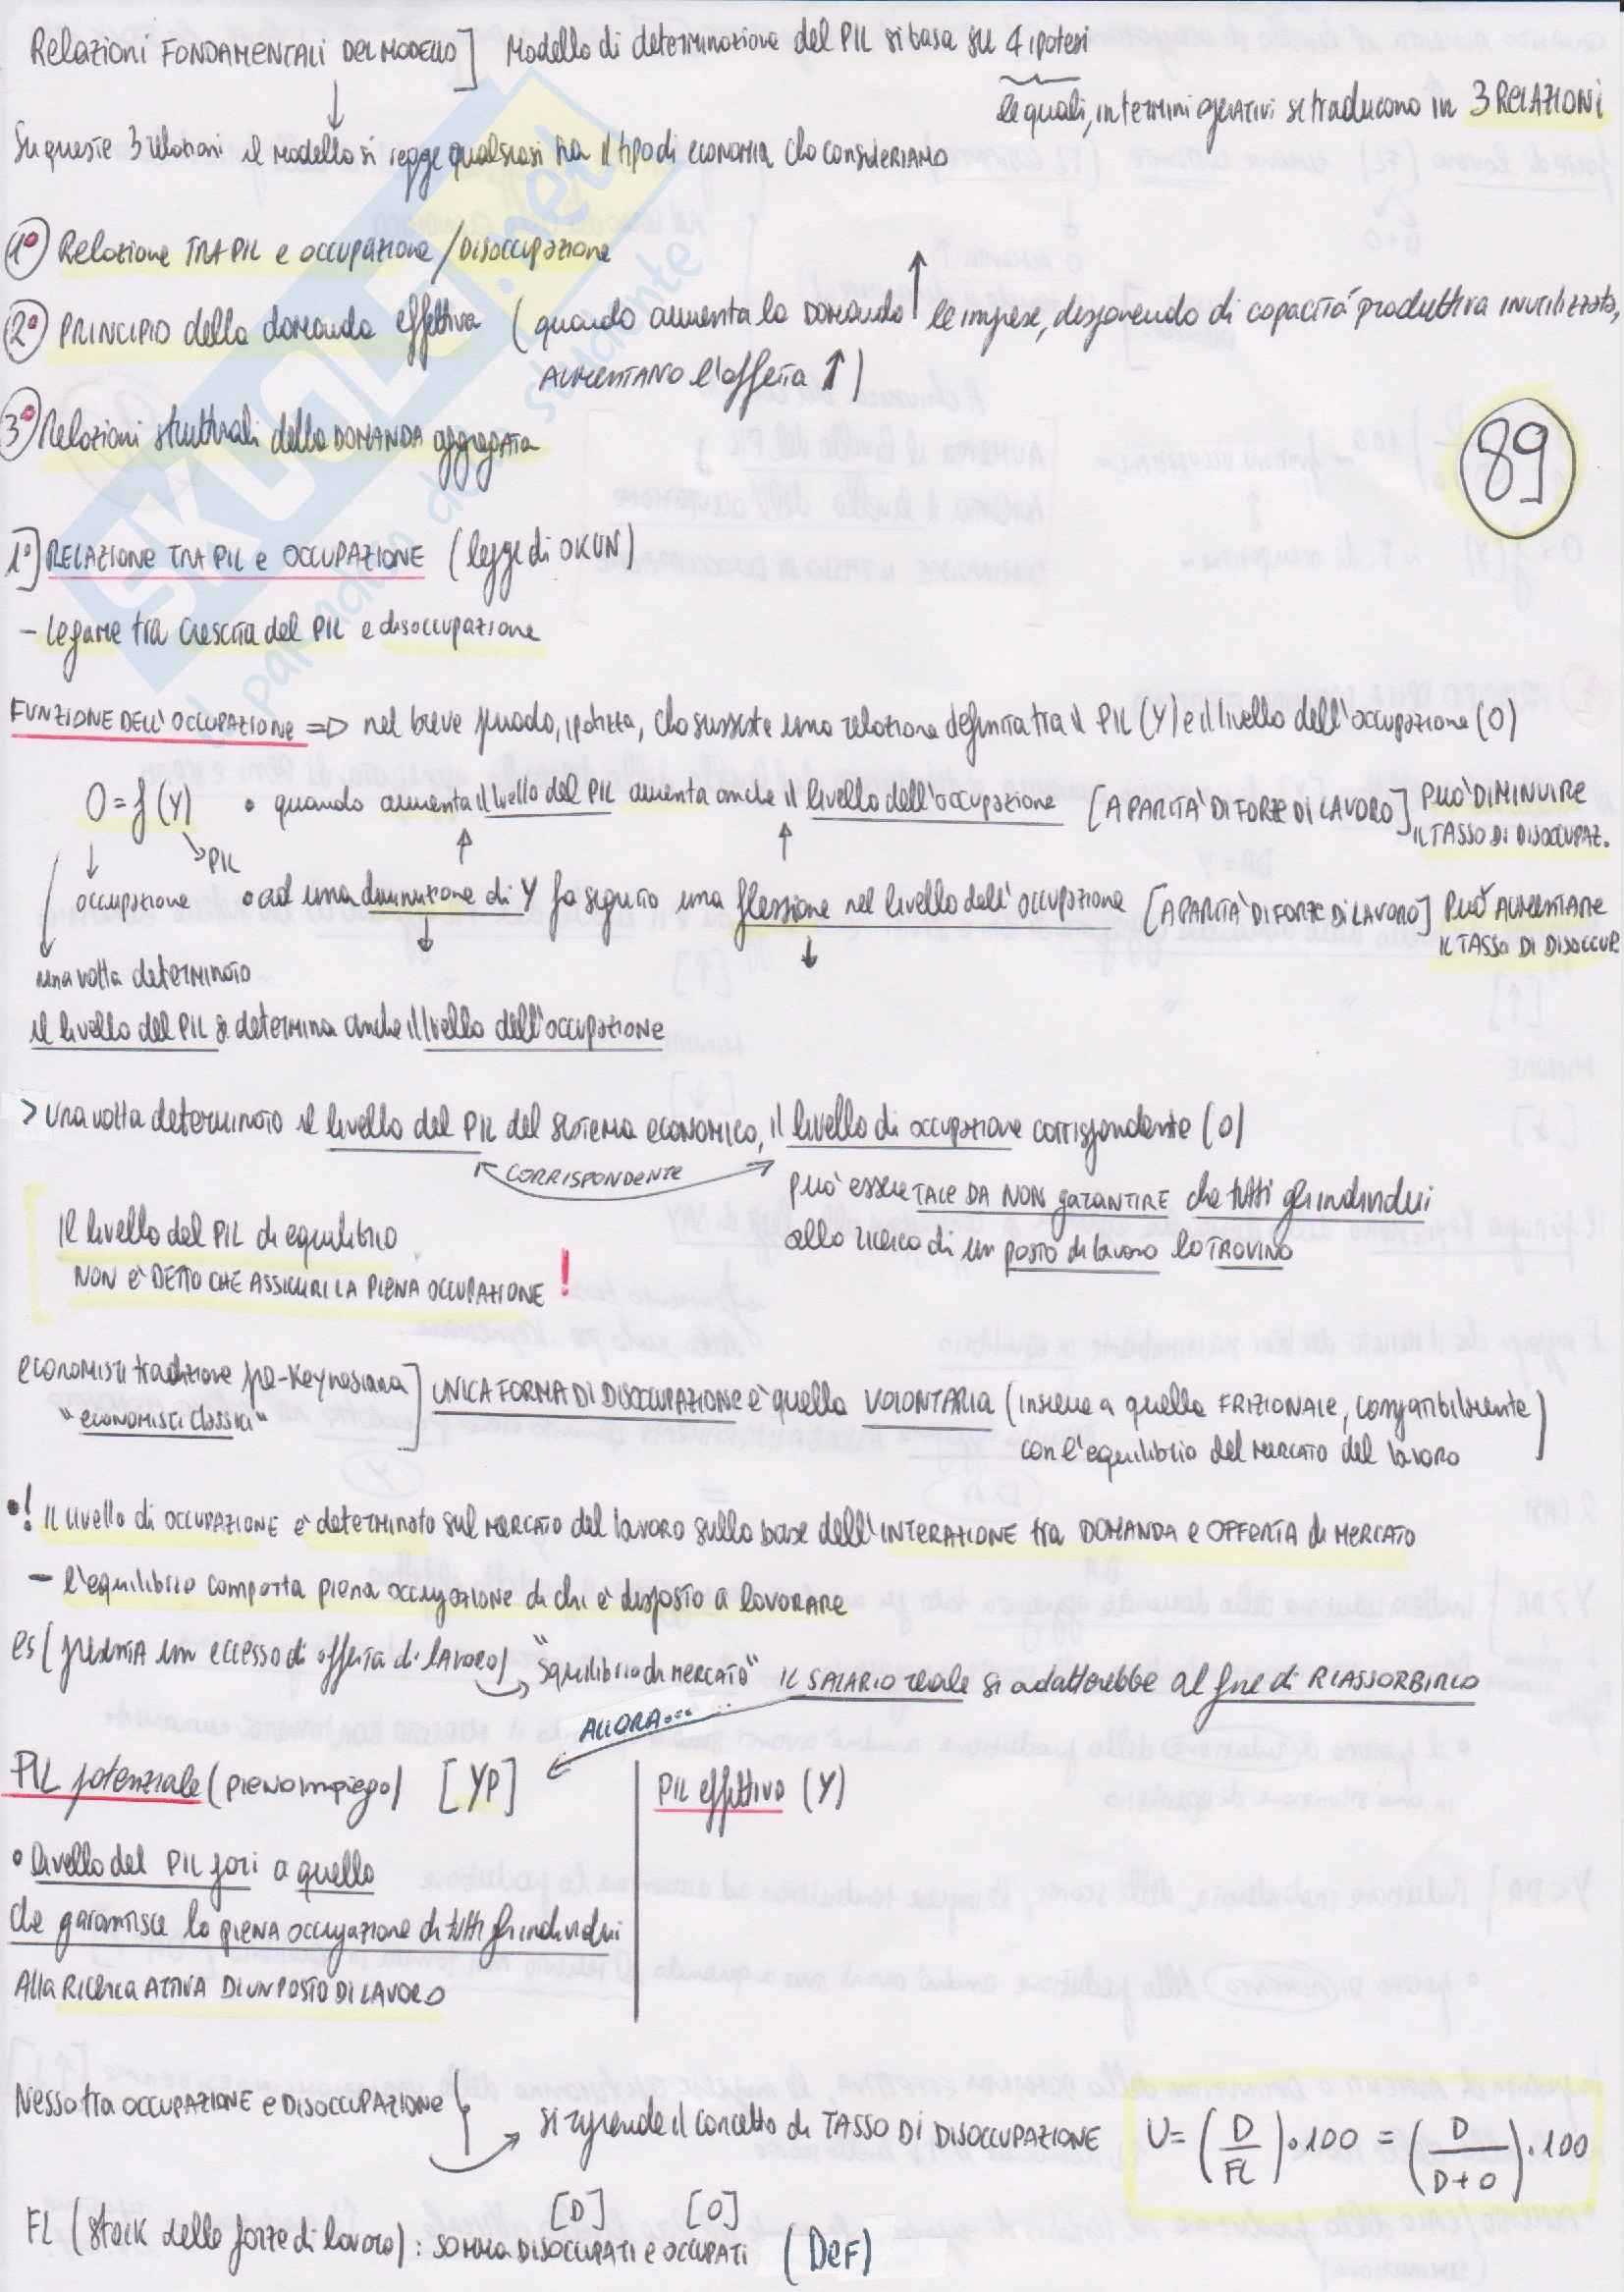 Relazioni FONDAMENTALI DEL MODELLO] Modello di determinazione del PIL si basa su 4 ipotesi
le quali, in termini operativi si traducono in 3 RELAZIONI
Su queste 3 relazioni il modello si regge qualsiasi sia il tipo di economia che consideriamo
1° Relazione TRA PIL e occupazione/DISOCCUPAZIONE
2° PRINCIPIO della domanda effettiva (quando aumenta la DOMANDA ↑ le imprese, disponendo di capacità produttiva inutilizzata,
AUMENTANO l'offerta ↑)
3° Relazioni strutturali della DOMANDA aggregata
89
1°] RELAZIONE TRA PIL e OCCUPAZIONE (legge di OKUN)
- legame tra crescita del PIL e disoccupazione
FUNZIONE DELL'OCCUPAZIONE => nel breve periodo, ipotizza, che sussiste una relazione definita tra il PIL (Y) e il livello dell'occupazione (O)
O = f(Y) • quando aumenta il livello del PIL aumenta anche il livello dell'occupazione [A PARITÀ DI FORZE DI LAVORO] PUÒ DIMINUIRE
IL TASSO DI DISOCCUPAZ.
↓ ↘ PIL ↑ ↑
occupazione • ad una diminuzione di Y fa seguito una flessione nel livello dell'occupazione [A PARITÀ DI FORZE DI LAVORO] PUÒ AUMENTARE
IL TASSO DI DISOCCUP.
↓ ↓
una volta determinato
il livello del PIL si determina anche il livello dell'occupazione
> una volta determinato il livello del PIL del sistema economico, il livello di occupazione corrispondente (O)
CORRISPONDENTE
può essere TALE DA NON garantire che tutti gli individui
alla ricerca di un posto di lavoro lo TROVINO
Il livello del PIL di equilibrio
NON È DETTO CHE ASSICURI LA PIENA OCCUPAZIONE !
economisti tradizione pre-Keynesiana
"economisti classici"
] UNICA FORMA DI DISOCCUPAZIONE è quella VOLONTARIA (insieme a quella FRIZIONALE, compatibilmente
con l'equilibrio del mercato del lavoro)
•! IL livello di OCCUPAZIONE è determinato sul MERCATO del lavoro sulla base dell'INTERAZIONE tra DOMANDA e OFFERTA di MERCATO
- l'equilibrio comporta piena occupazione di chi è disposto a lavorare
es (presenta un eccesso di offerta di lavoro) "squilibrio di MERCATO" IL SALARIO reale si adatterebbe al fine di RIASSORBIRLO
ALLORA...
PIL potenziale (pieno impiego) [YP]
PIL effettivo (Y)
• livello del PIL pari a quello
che garantisce la piena occupazione di tutti gli individui
Alla RICERCA ATTIVA DI UN POSTO DI LAVORO
Nesso tra OCCUPAZIONE e DISOCCUPAZIONE } si riprende il concetto di TASSO DI DISOCCUPAZIONE U = (D/FL)•100 = (D/D+O)•100
[D] [O]
FL (stock delle forze di lavoro): SOMMA DISOCCUPATI e OCCUPATI (DEF)
SKUOLA.net